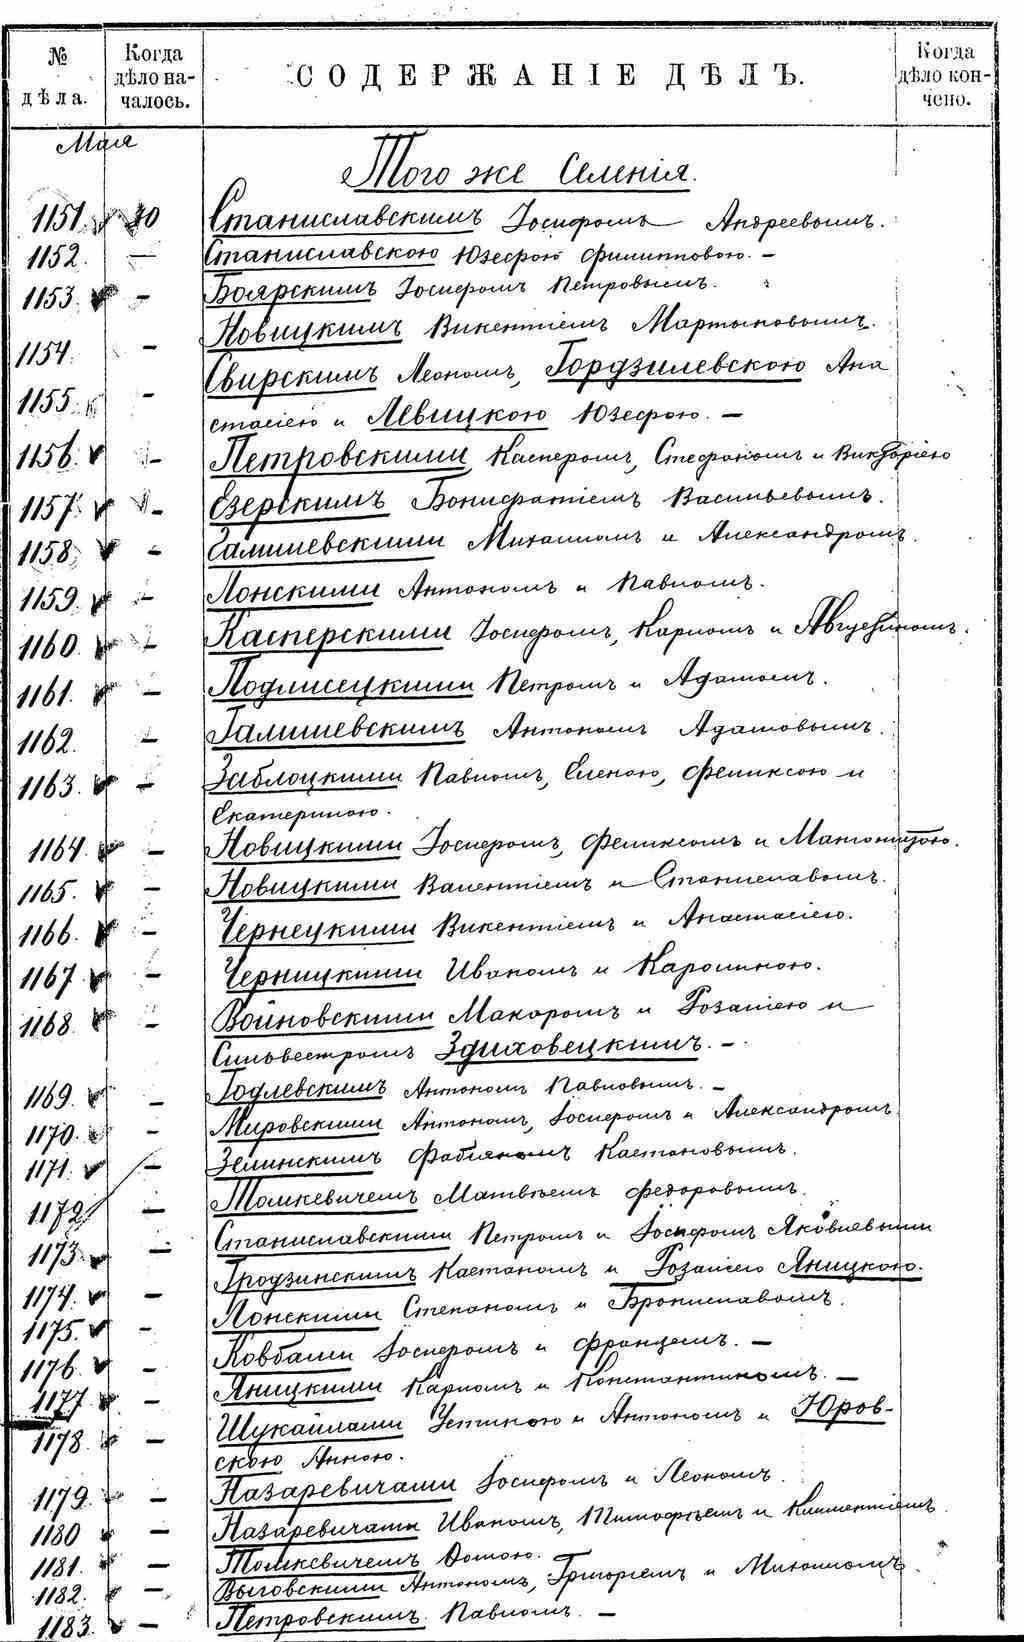 № дѣла. Когда дѣло началось. СОДЕРЖАНІЕ ДѢЛЪ. Когда дѣло кончено.
Мая
Того же Селенія.
1151. 30 Станиславскимъ Іосифомъ Андреевымъ.
1152. — Станиславскою Юзефою Филипповою. —
1153. — Боярскимъ Іосифомъ Петровымъ.
1154. — Новицкимъ Викентіемъ Мартыновымъ.
1155. — Свирскимъ Леономъ, Гордзилевскою Ана
стасіею и Левицкою Юзефою. —
1156. — Петровскими Касперомъ, Стефаномъ и Викторіею
1157. — Езерскимъ Бонифатіемъ Васильевымъ.
1158. — Галишевскими Михаиломъ и Александромъ.
1159. — Лонскими Антономъ и Павломъ.
1160. — Касперскими Іосифомъ, Карломъ и Августиномъ.
1161. — Подлисецкими Петромъ и Адамомъ.
1162. — Галишевскимъ Антономъ Адамовымъ.
1163. — Заблоцкими Павломъ, Еленою, Феликсою и
Екатериною.
1164. — Новицкими Іосифомъ, Феликсомъ и
1165. — Новицкими Валентіемъ и Станиславомъ.
1166. — Чернецкими Викентіемъ и Анастасіею.
1167. — Черницкими Иваномъ и Каролиною.
1168. — Войновскими Макаромъ и Розаліею и
Сильвестромъ Здиховецкимъ. —
1169. — Годлевскимъ Антономъ Павловымъ. —
1170. — Мировскими Антономъ, Іосифомъ и Александромъ.
1171. — Зелинскимъ Фабіяномъ Каетановымъ.
1172. — Томкевичемъ Матвѣемъ Федоровымъ.
1173. — Станиславскими Петромъ и Іосифомъ Яковлевыми
1174. — Гродзинскимъ Каетаномъ и Розаліею Яницкою.
1175. — Лонскими Степаномъ и Брониславомъ.
1176. — Ковбами Іосифомъ и Францемъ. —
1177. — Яницкими Карломъ и Константиномъ. —
1178. — Шукайлами Устиною и Антономъ и Юров-
скою Анною.
1179. — Лазаревичами Іосифомъ и Леономъ.
1180 — Лазаревичами Иваномъ, Тимофѣемъ и Климентіемъ.
1181. — Томкевичемъ Фомою.
1182. — Выговскими Антономъ, Григоріемъ и Михаиломъ.
1183. — Петровскимъ Павломъ. —